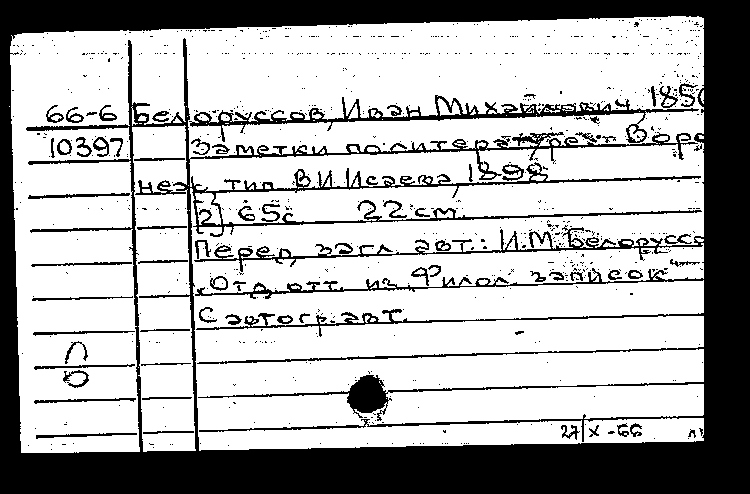 66-6 Белоруссов, Иван Михайлович, 1850
10397 Заметки по литературе. Воро
неж, тип. В.И. Исаева, 1898
[2], 65с 22 см.
Перед загл. авт.: И.М. Белоруссо
"Отд. отт. из "Филол. записок"
С автогр. авт.
27/X-66